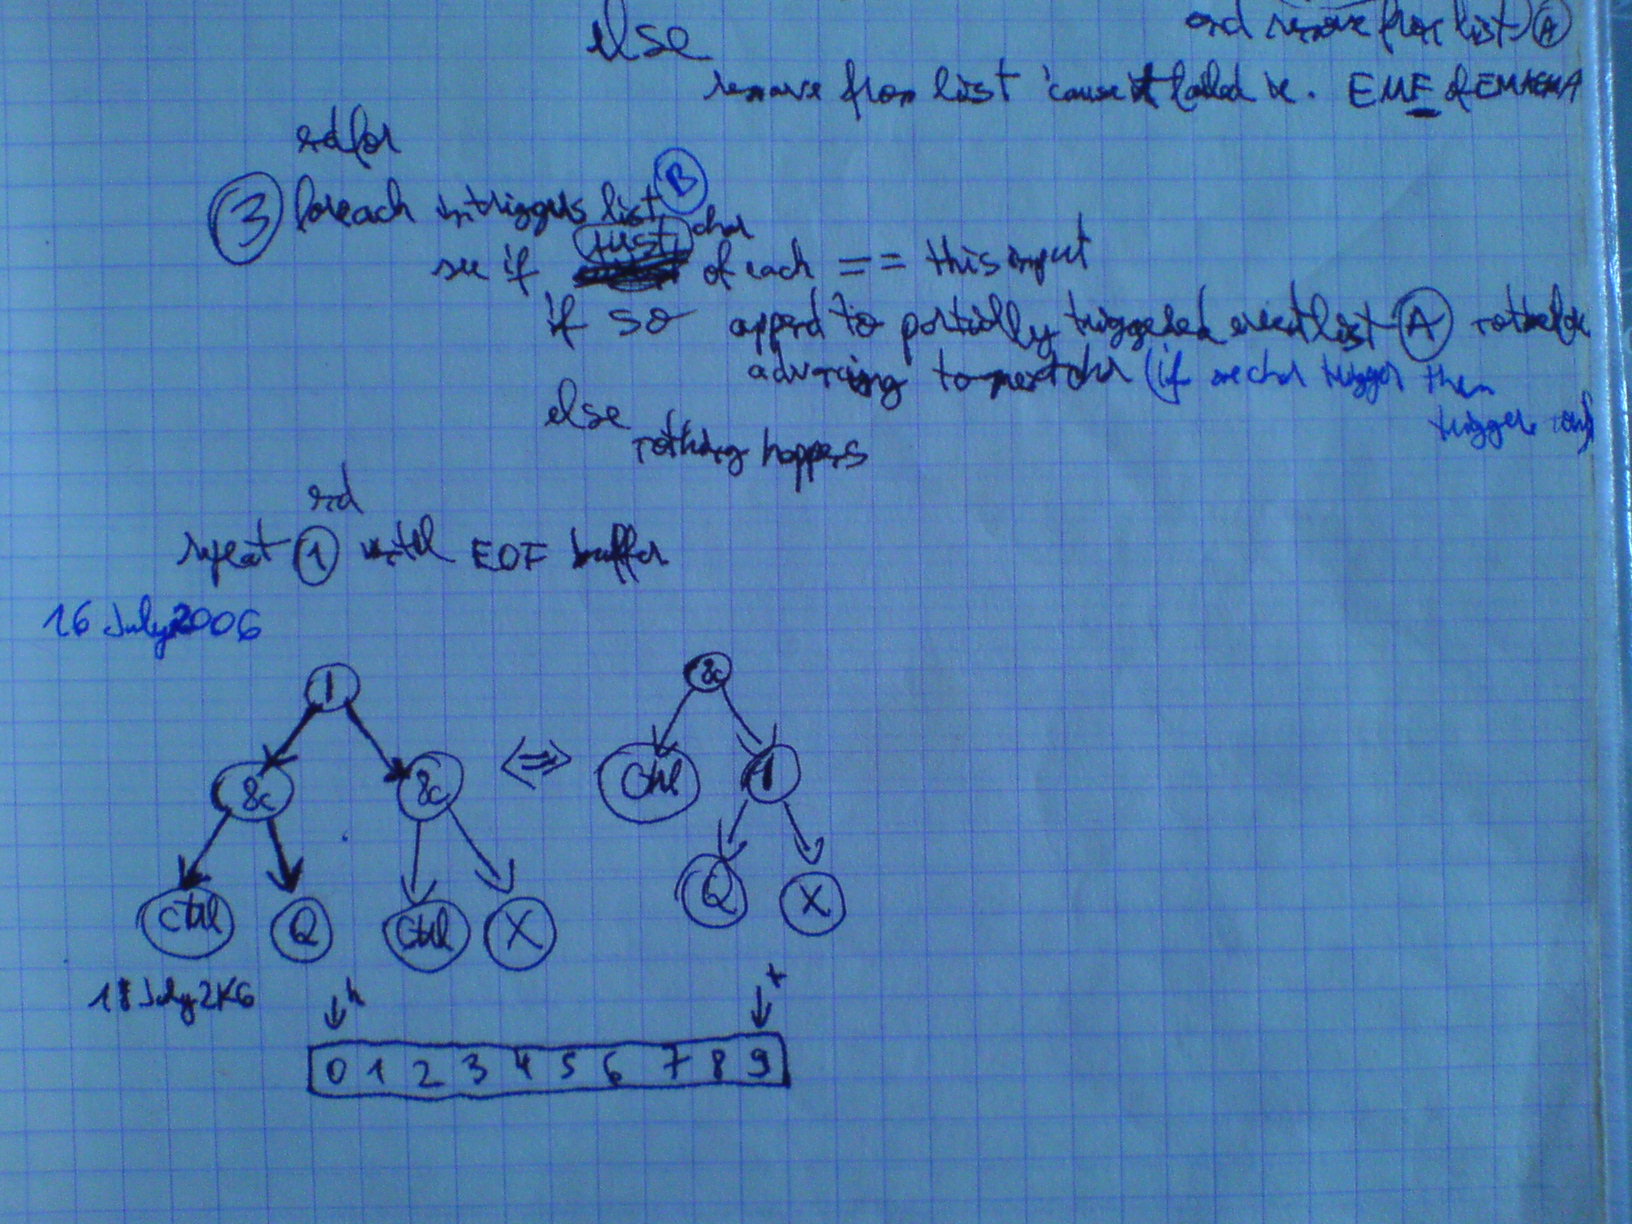 else
and remove from list A
remove from list 'cause it failed ie. EMF of EMAEMA
endfor
3 foreach in triggers list B
see if first char of each == this input
if so append to partially triggered event list A
advancing to next char (if one char trigger then
trigger
else
nothing happens
end
repeat 1 until EOF buffer
16 July 2006
| &
& & <=> Ctrl |
Ctrl Q Ctrl X Q X
18 July 2K6
h t
0 1 2 3 4 5 6 7 8 9